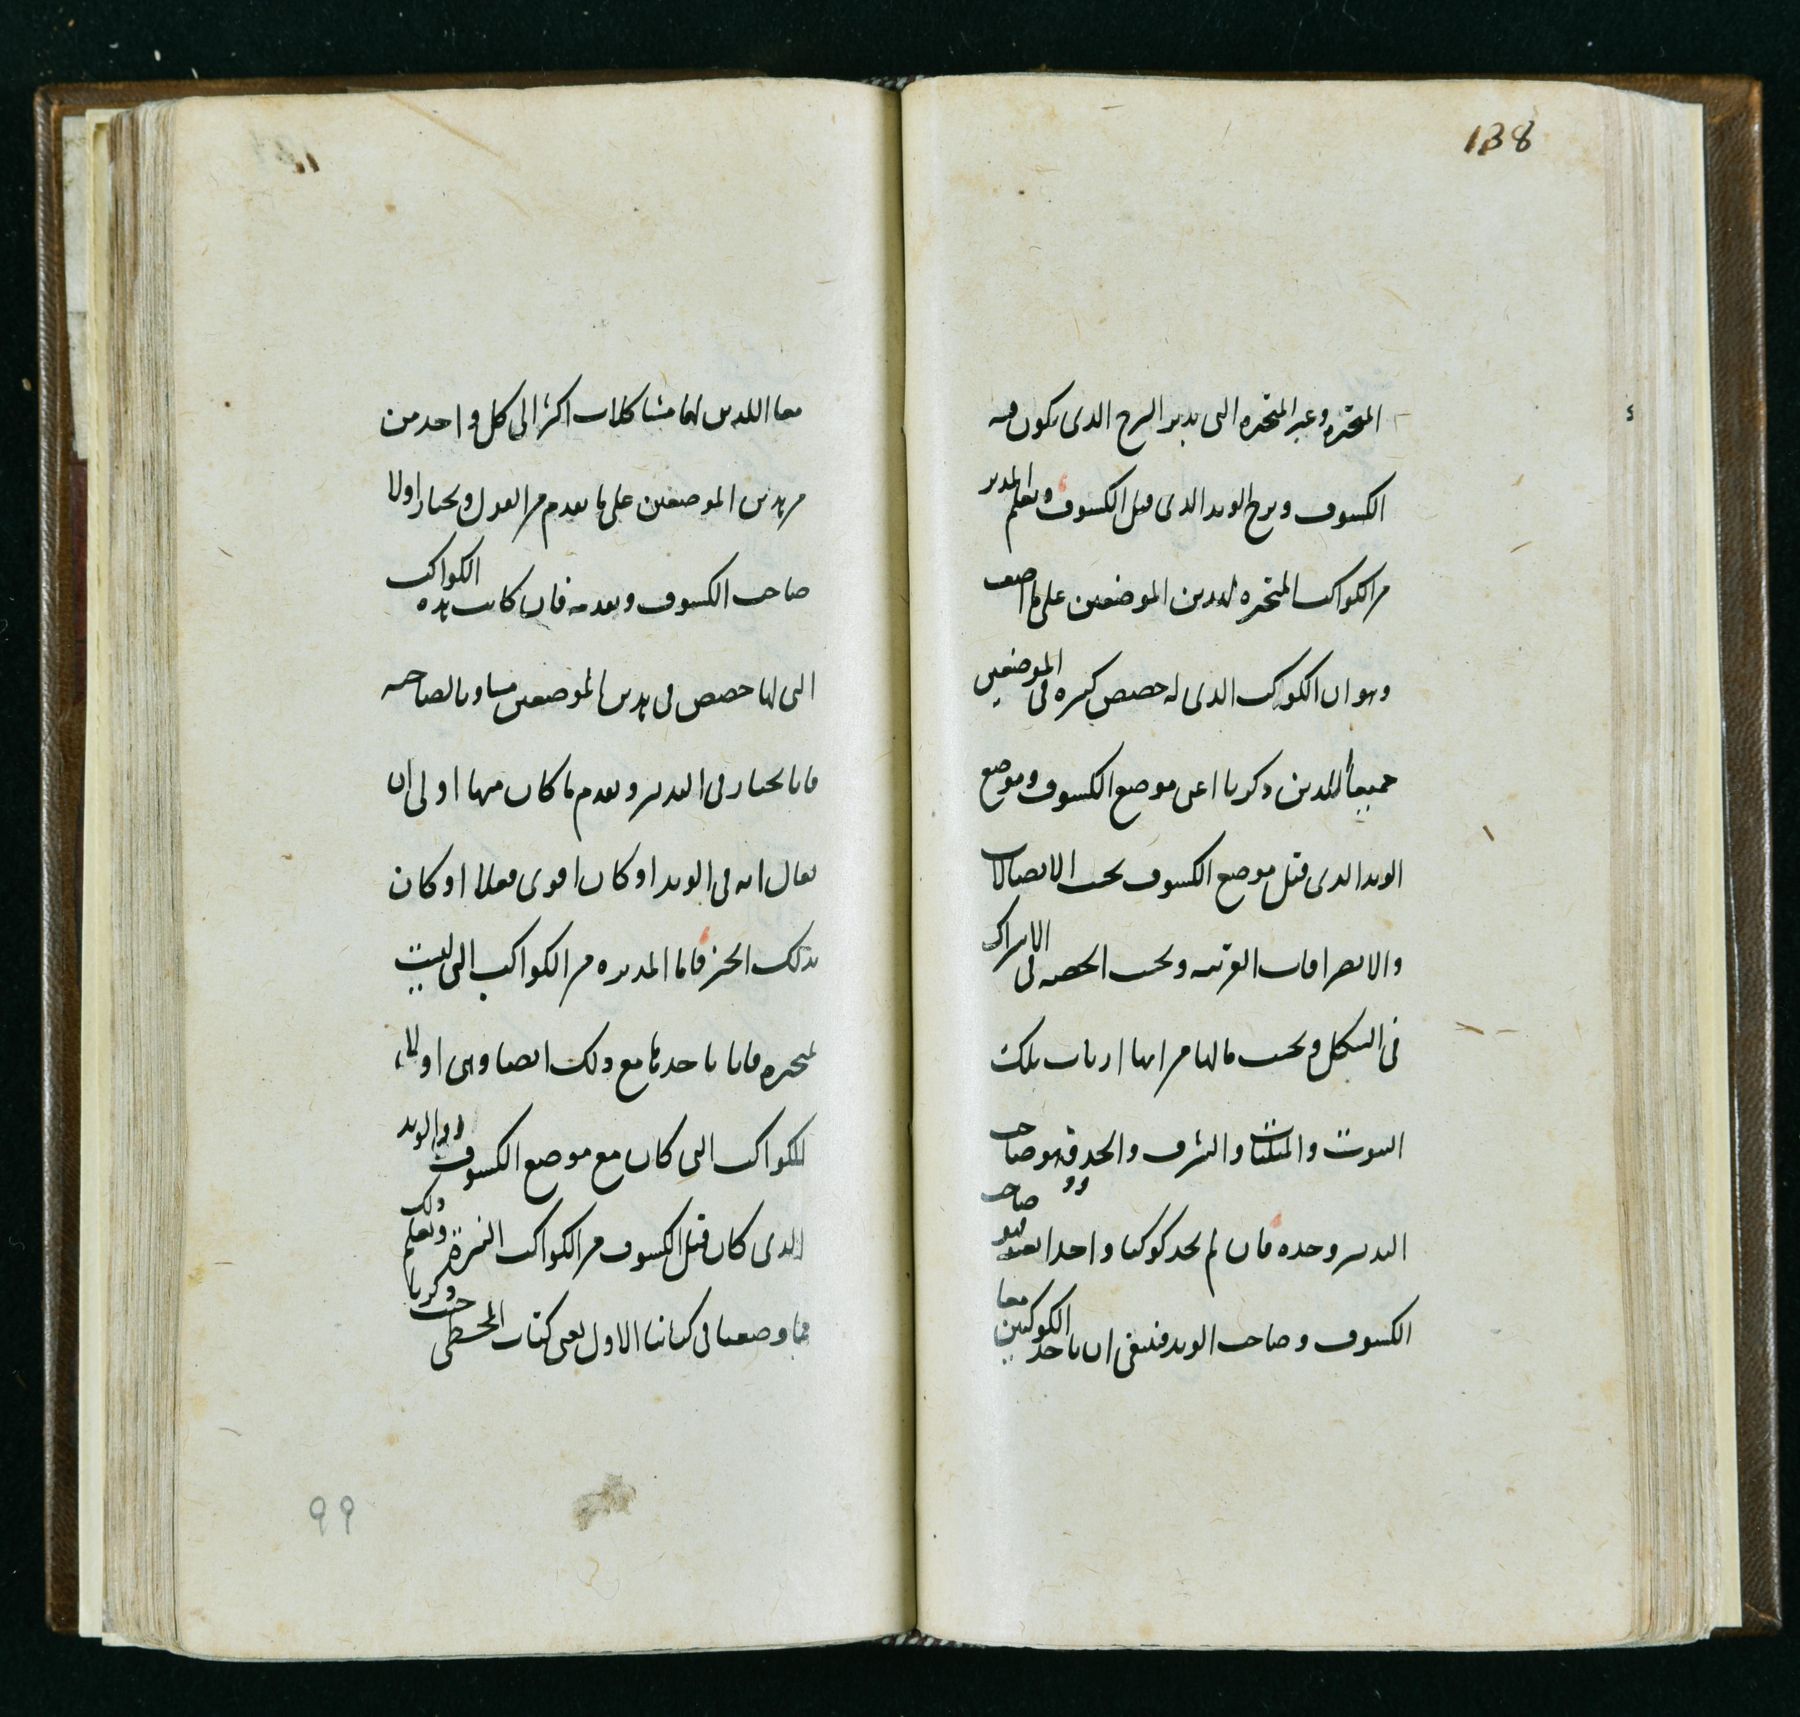 138
المتحيره وغير المتحيره التى تدبر البرج الذى يكون فيه
الكسوف وبرج الوتد الذى قبل الكسوف ونعلم المدبر
من الكواكب المتحيره لهذين الموضعين على ما اصف
وهو ان الكوكب الذى له حصص كثيره فى الموضعين
جميعاً اللذين ذكرنا اعنى موضع الكسوف وموضع
الوتد الذى قبل موضع الكسوف بحسب الاتصالات
والانصرافات القريبه وبحسب الحصه فى الاشراك
فى الشكل وبحسب مالها من انها ارباب تلك
البيوت والمثلثات والشرف والحد فهو صاحب
التدبير وحده فان لم نجد كوكبا واحدا بعينه هو صاحب
الكسوف وصاحب الوتد فينبغى ان ناخذ الكوكبين معا
معا اللذين لهما مشاكلات اكثر الى كل واحد من
من هذين الموضعين على ما تقدم من القول ونختار اولا
صاحب الكسوف ونقدمه فان كانت هذه الكواكب
التى لها حصص فى هذين الموضعين مساويا لصاحبه
فانا نختار فى التدبير ونقدم ما كان منها اولى ان
يقال انه فى الوتد او كان اقوى فعلا او كان
بذلك الحيز فاما المدبره من الكواكب التى ليست
بمتحيره فانا ناخذها مع ذلك ايضا وهى اولا
للكواكب التى كان مع موضع الكسوف والوتد
الذى كان قبل الكسوف من الكواكب النيرة ونعلم ذلك
مما وضعنا فى كتابنا الاول يعنى كتاب المجسطى حيث ذكرنا
99